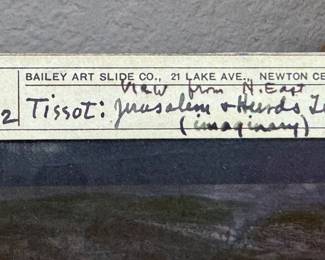 BAILEY ART SLIDE CO., 21 LAKE AVE., NEWTON CE
View from N. East
2 Tissot: Jerusalem &
(imaginary)